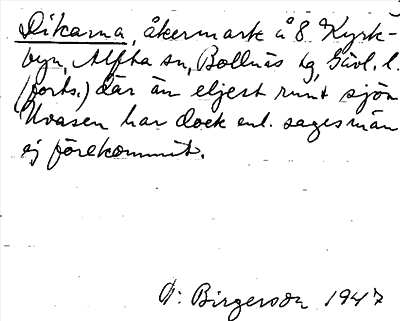 Dikarna, åkermark å 8 Kyrk-
byn, Alfta sn, Bollnäs tg, Gävl. l.
(forts.) där än eljest runt sjön
Kvasen har dock enl. sagesmän
ej förekommit.
V: Birgerson 1947